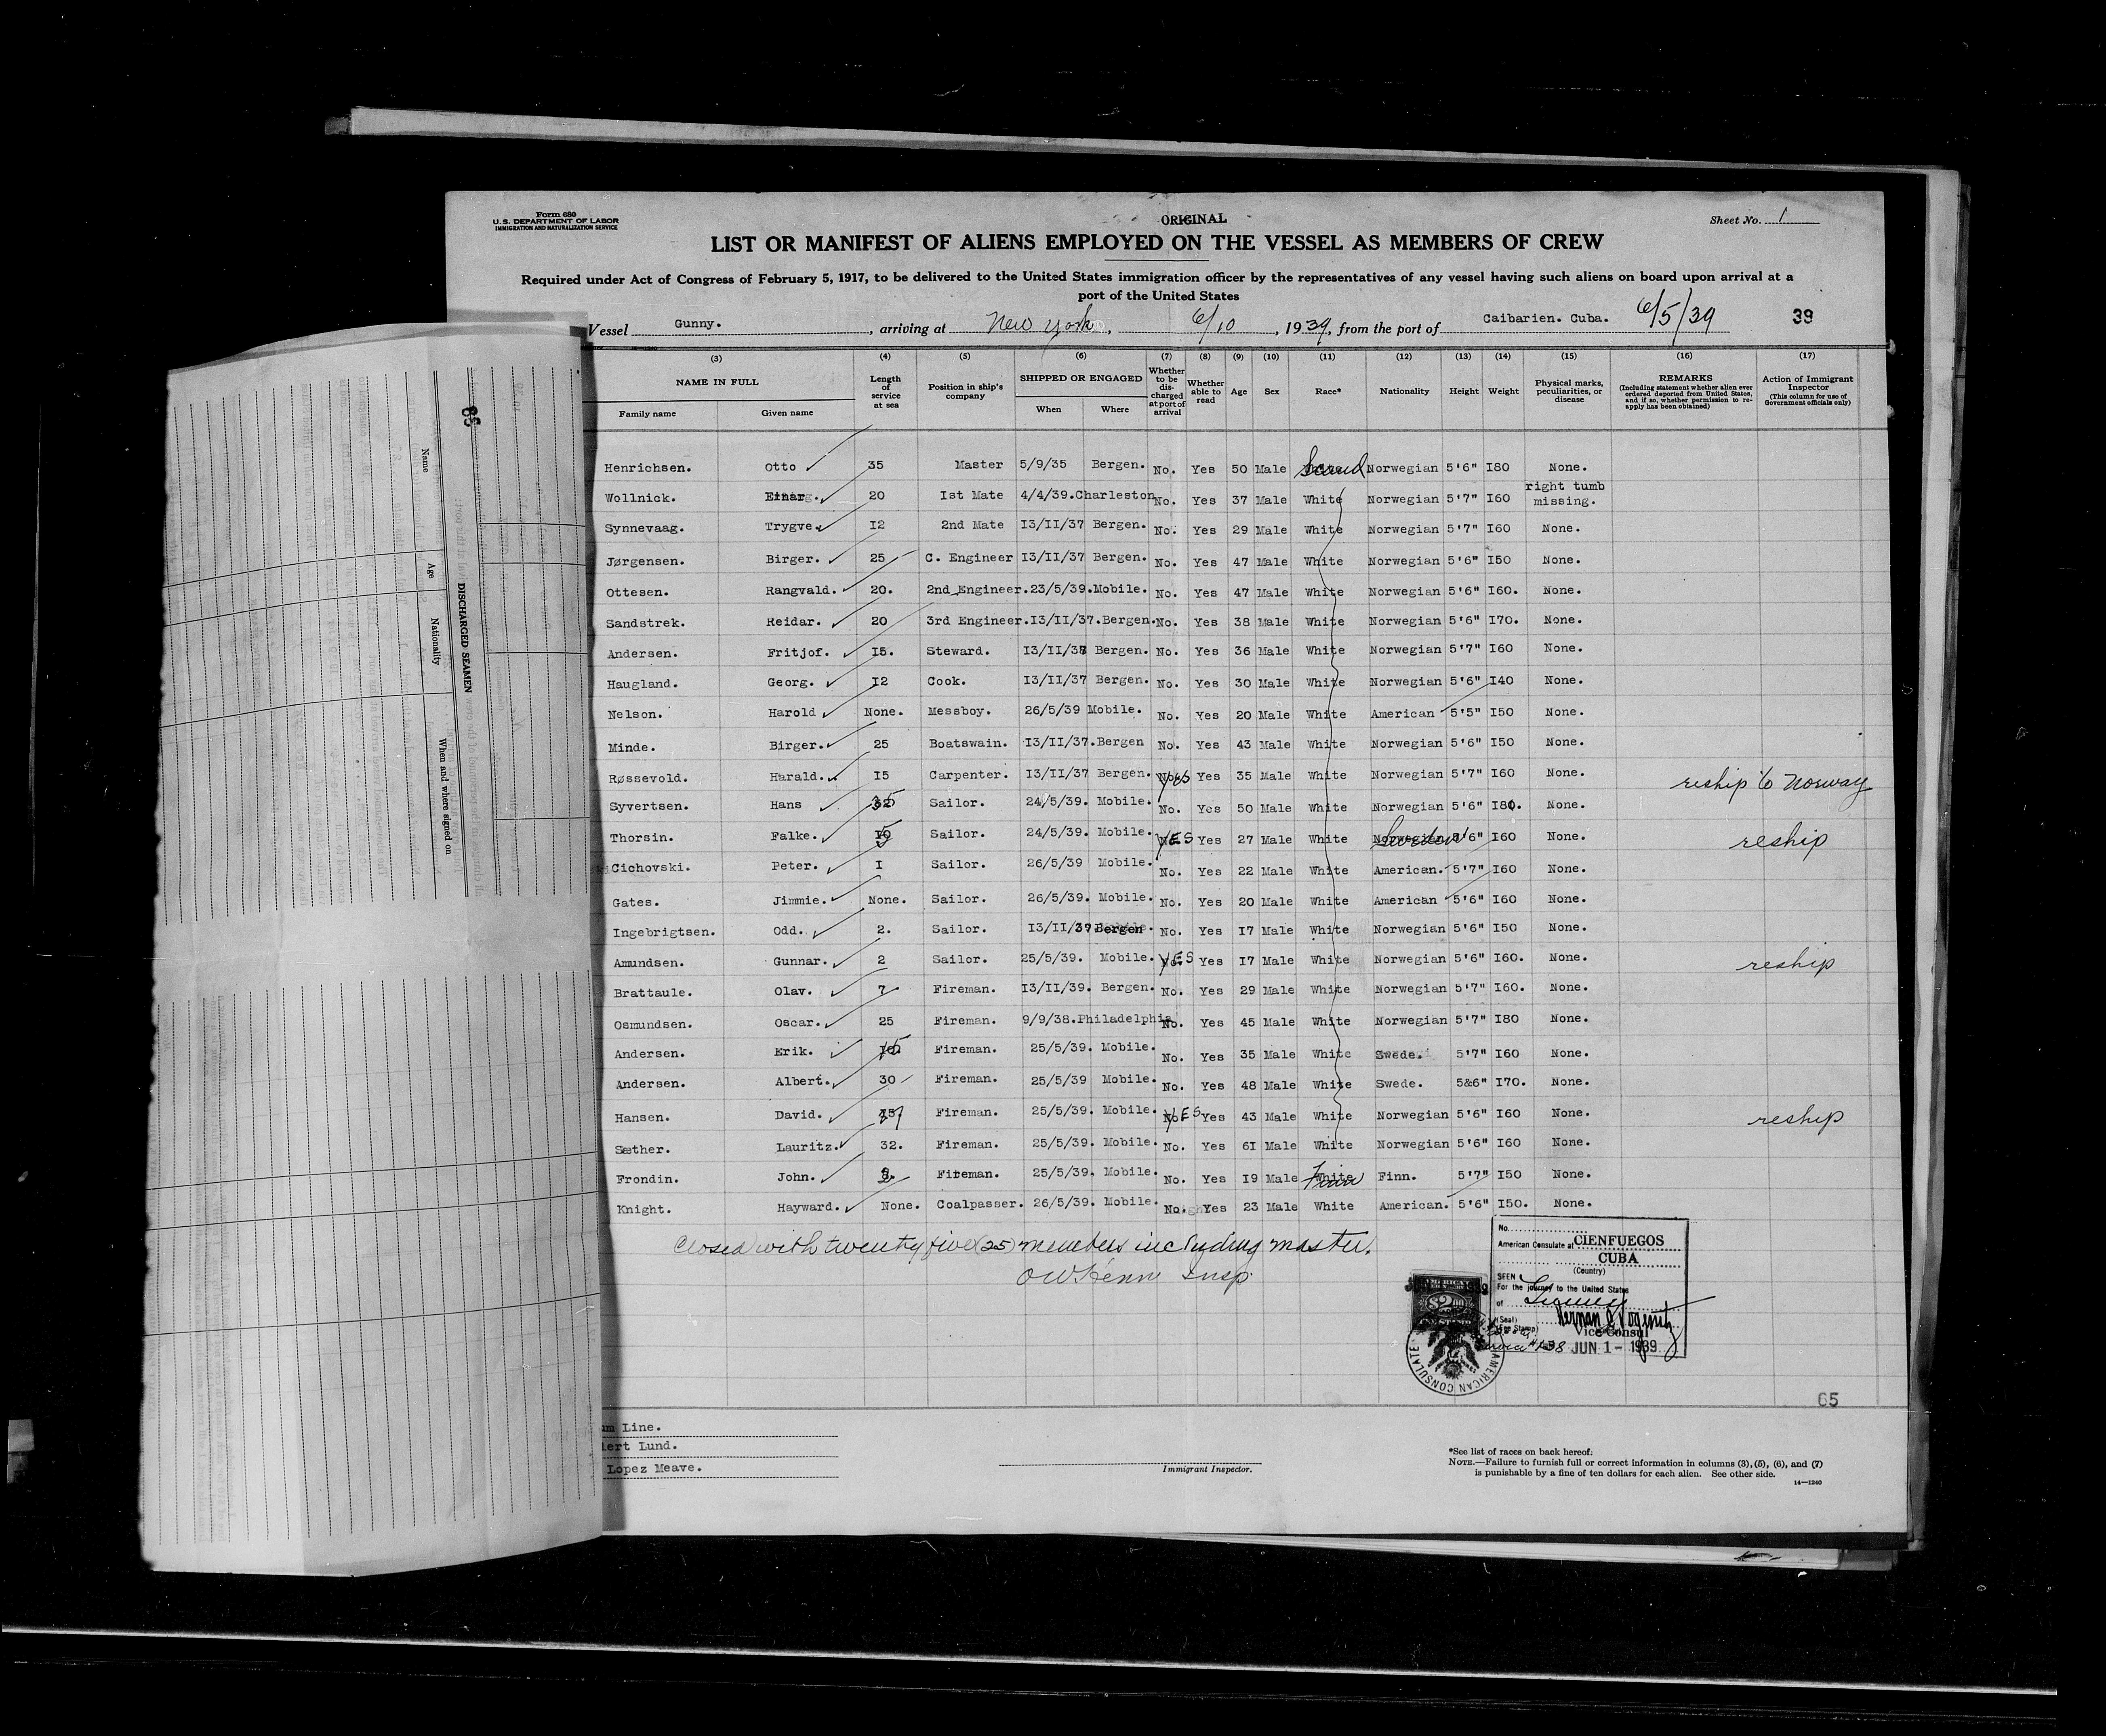 Form 680
U. S. DEPARTMENT OF LABOR
IMMIGRATION AND NATURALIZATION SERVICE
ORIGINAL
Sheet No. 1
LIST OR MANIFEST OF ALIENS EMPLOYED ON THE VESSEL AS MEMBERS OF CREW
Required under Act of Congress of February 5, 1917, to be delivered to the United States immigration officer by the representatives of any vessel having such aliens on board upon arrival at a
port of the United States
Vessel Gunny. , arriving at New York , 6/10 , 1939, from the port of Caibarien. Cuba. 6/5/39 39
(3) (4) (5) (6) (7) (8) (9) (10) (11) (12) (13) (14) (15) (16) (17)
NAME IN FULL
Family name Given name
Length of service at sea
Position in ship's company
SHIPPED OR ENGAGED
When Where
Whether to be discharged at port of arrival
Whether able to read
Age
Sex
Race*
Nationality
Height
Weight
Physical marks, peculiarities, or disease
REMARKS
(Including statement whether alien ever ordered deported from United States, and if so, whether permission to reapply has been obtained)
Action of Immigrant Inspector
(This column for use of Government officials only)
Henrichsen. Otto 35 Master 5/9/35 Bergen. No. Yes 50 Male Scand Norwegian 5'6" I80 None.
Wollnick. Einar. 20 Ist Mate 4/4/39. Charleston No. Yes 37 Male White Norwegian 5'7" I60 right tumb missing.
Synnevaag. Trygve. I2 2nd Mate I3/II/37 Bergen. No. Yes 29 Male White Norwegian 5'7" I60 None.
Jørgensen. Birger. 25 C. Engineer I3/II/37 Bergen. No. Yes 47 Male White Norwegian 5'6" I50 None.
Ottesen. Rangvald. 20. 2nd Engineer. 23/5/39. Mobile. No. Yes 47 Male White Norwegian 5'6" I60. None.
Sandstrek. Reidar. 20 3rd Engineer. I3/II/37. Bergen. No. Yes 38 Male White Norwegian 5'6" I70. None.
Andersen. Fritjof. I5. Steward. I3/II/37 Bergen. No. Yes 36 Male White Norwegian 5'7" I60 None.
Haugland. Georg. I2 Cook. I3/II/37 Bergen. No. Yes 30 Male White Norwegian 5'6" I40 None.
Nelson. Harold None. Messboy. 26/5/39 Mobile. No. Yes 20 Male White American 5'5" I50 None.
Minde. Birger. 25 Boatswain. I3/II/37. Bergen No. Yes 43 Male White Norwegian 5'6" I50 None.
Røssevold. Harald. I5 Carpenter. I3/II/37 Bergen. Yes Yes 35 Male White Norwegian 5'7" I60 None. reship to Norway
Syvertsen. Hans 35 Sailor. 24/5/39. Mobile. No. Yes 50 Male White Norwegian 5'6" I80. None.
Thorsin. Falke. 5 Sailor. 24/5/39. Mobile. YES Yes 27 Male White Norwegian 5'6" I60 None. reship
Cichovski. Peter. I Sailor. 26/5/39 Mobile. No. Yes 22 Male White American. 5'7" I60 None.
Gates. Jimmie. None. Sailor. 26/5/39. Mobile. No. Yes 20 Male White American 5'6" I60 None.
Ingebrigtsen. Odd. 2. Sailor. I3/II/37 Bergen. No. Yes I7 Male White Norwegian 5'6" I50 None.
Amundsen. Gunnar. 2 Sailor. 25/5/39. Mobile. YES Yes I7 Male White Norwegian 5'6" I60. None. reship
Brattaule. Olav. 7 Fireman. I3/II/39. Bergen. No. Yes 29 Male White Norwegian 5'7" I60. None.
Osmundsen. Oscar. 25 Fireman. 9/9/38. Philadelphia No. Yes 45 Male White Norwegian 5'7" I80 None.
Andersen. Erik. 15 Fireman. 25/5/39. Mobile. No. Yes 35 Male White Swede. 5'7" I60 None.
Andersen. Albert. 30 Fireman. 25/5/39 Mobile. No. Yes 48 Male White Swede. 5&6" I70. None.
Hansen. David. Fireman. 25/5/39. Mobile. YES Yes 43 Male White Norwegian 5'6" I60 None. reship
Sæther. Lauritz. 32. Fireman. 25/5/39. Mobile. No. Yes 6I Male White Norwegian 5'6" I60 None.
Frondin. John. Fireman. 25/5/39. Mobile. No. Yes I9 Male Finn Finn. 5'7" I50 None.
Knight. Hayward. None. Coalpasser. 26/5/39. Mobile. No. Yes 23 Male White American. 5'6" I50. None.
Closed with twenty five (25) members including master.
Insp.
No.
American Consulate at CIENFUEGOS
CUBA
(Country)
SEEN
For the journey to the United States
of
(Seal)
(Fee Stamp)
Vice Consul
JUN 1 - 1939
AMERICAN CONSULATE
$2.00
65
Line.
Lund.
Lopez Meave.
Immigrant Inspector.
*See list of races on back hereof.
NOTE.—Failure to furnish full or correct information in columns (3), (5), (6), and (7)
is punishable by a fine of ten dollars for each alien. See other side.
14—1240
DISCHARGED SEAMEN
Name
Age
Nationality
When and where signed on